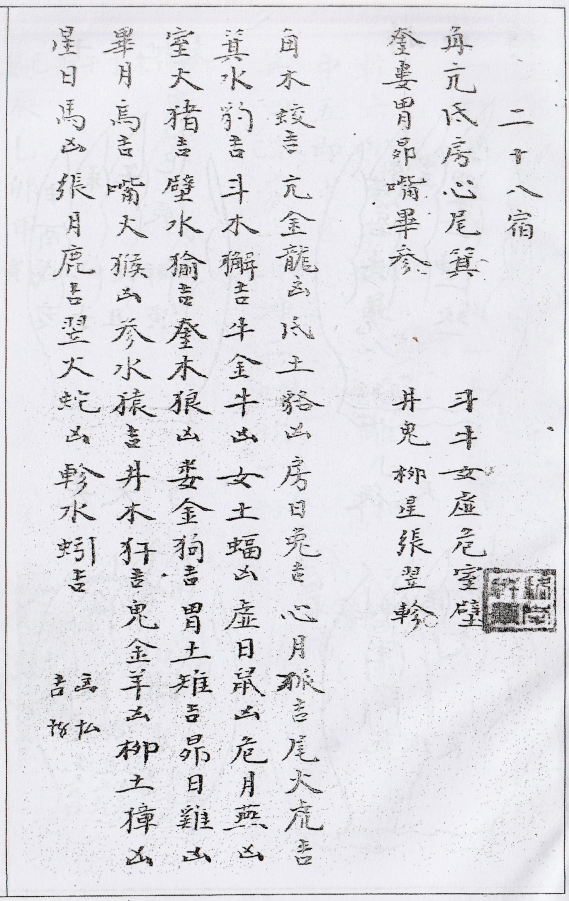 二十八宿
角亢氐房心尾箕　斗牛女虛危室壁
奎婁胃昴嘴畢參　井鬼柳星張翌軫
角木蛟吉亢金龍凶氐土貉凶房日兔吉心月狐吉尾火虎吉
箕水豹吉斗木獬吉牛金牛凶女土蝠凶虛日鼠凶危月燕凶
室火猪吉壁水㺄吉奎木狼凶婁金狗吉胃土雉吉昴日雞凶
畢月烏吉嘴火猴凶參水猿吉井木犴吉鬼金羊凶柳土獐凶
星日馬凶張月鹿吉翌火蛇凶軫水蚓吉
凶
吉